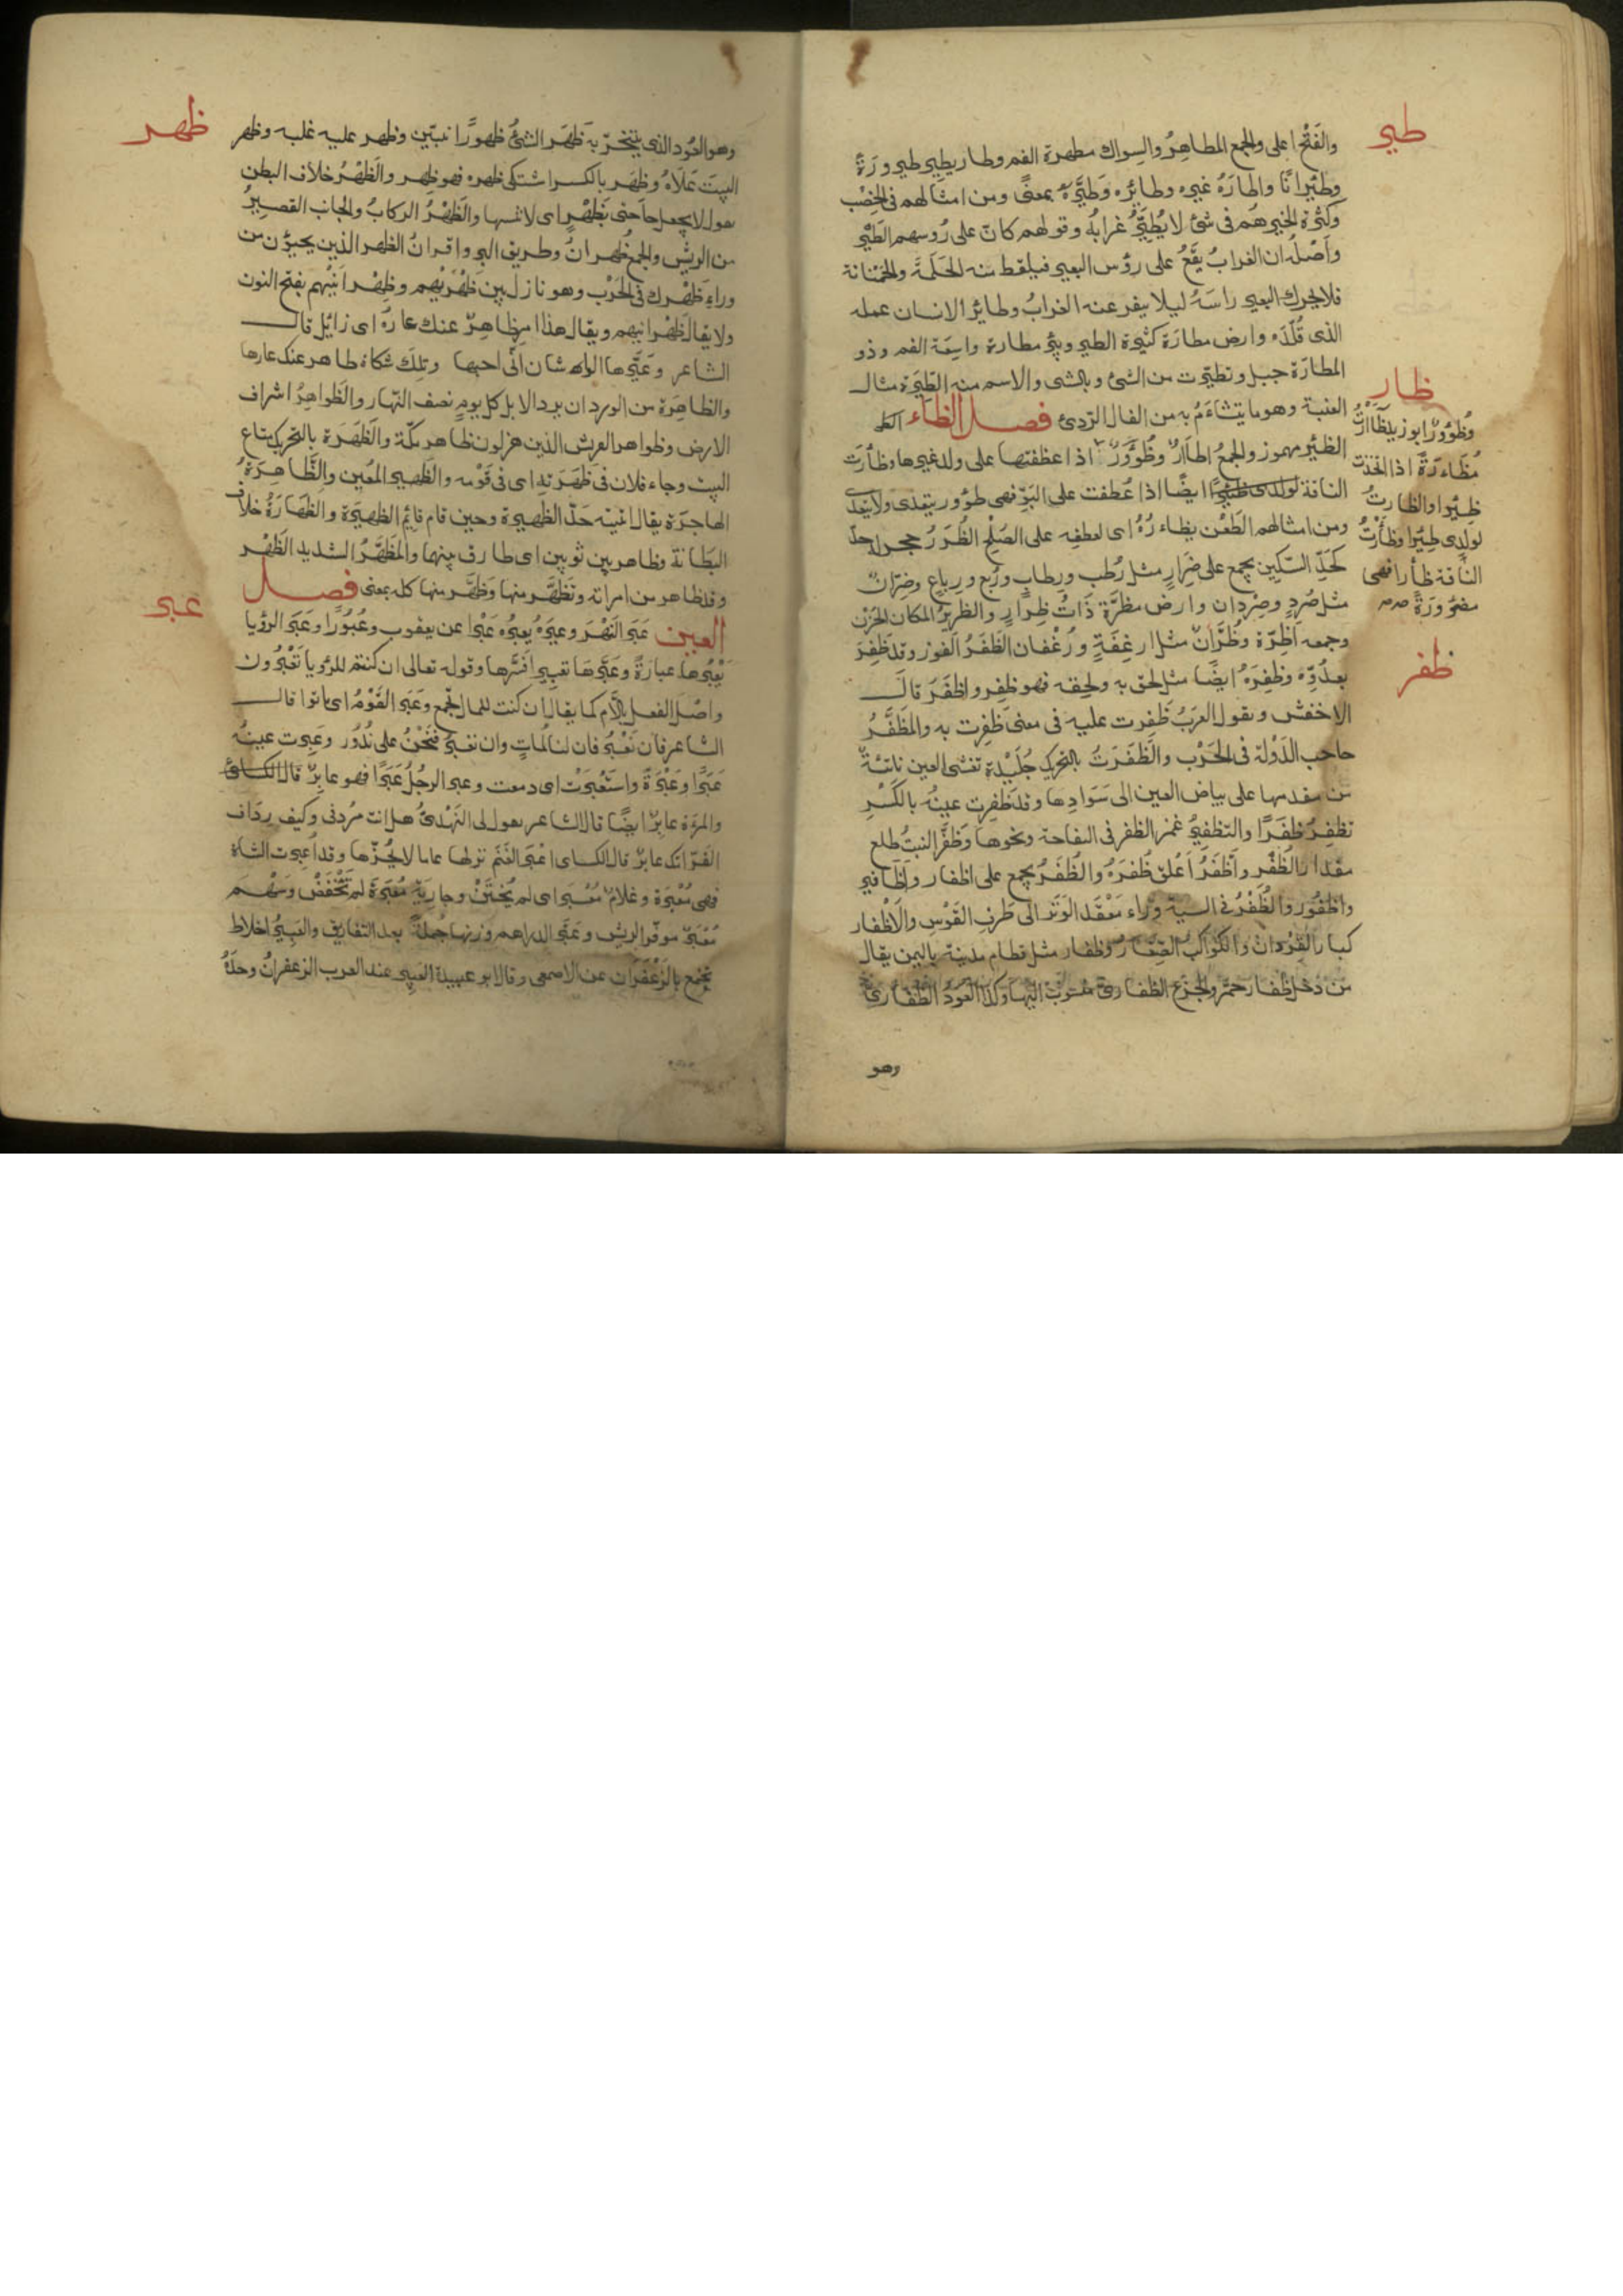 طير
والفَتْح اعلى والجمع المطاهِرُ والسِواك مطهرة الفم وطار يطِير طيرورَةً
وطَيَرانًا واطارَهُ غيره وطايَره وطَيَّرَهُ بمعنًى ومن امثالهم فى الخِصْب
وكثرة الخير هُم فى شئ لا يُطَيَّرُ غرابُه وقولهم كانّ على رُوسهم الطَيْر
واَصْلُه ان الغرابُ يقَعُ على رؤس البعير فيلقط منه الحَلَمَةَ والحَمْنانة
فلا يحرك البعير راسَهُ ليلا ينفر عنه الغرابُ وطايرُ الانسان عمله
الذى قُلِّدَه وارض مطارَة كثيرة الطير وبئر مطارة واسِعَة الفم وذو
المطارَة جبل وتطيّرت من الشئ وبالشى والاسم منه الطِيَرَة مثال
العنبة وهو ما يتشاءَمُ به من الفال الردئ فصل الظاء
ظار
الظئر مهموز والجمعُ اظآرٌ وظُؤُورٌ اذا عطفتها على ولد غيرها وظأرت
الناقة ايضًا اذا عُطفت على البَوّ فهى ظؤور يتعدى ولا يتعدى
ومن امثالهم الطَعْن يظاءرُهُ اى لعطفه على الصُلْحِ الظُرَرُ حجر له حدّ
كَحَدِّ السكين يجمع على ضِرَارٍ مثل رُطب ورِطاب ورُبع ورِباع وضِرّان
مثل صُرَد وصِرْدان وارض مظرَّة ذَاتُ ظِرَارٍ والظرير المكان الحَزْن
وجمعه اَظِرّة وظُرَّانٌ مثل ارغِفَةٍ ورُغْفان الظَفَرُ الفوز وقد ظَفِرَ
بعدُوّه وظفِرَهُ ايضًا مثل لحق به ولحقه فهو ظفِر واظفَرَ قالَ
وظؤورٌ ابو زيد ظآارْتُ
مُظَاءرَةً اذا اتخذت
ظئيرا واظارتُ
لولدى ظئرا وظأرْتُ
الناقة ظأرا فهى
مضؤورَةٌ صح
ظفر
الاخفش وبقول العرَبُ ظَفِرت عليه فى معنى ظَفِرت به والمظَفَّرُ
صاحب الدَوْلة فى الحَرْب والظَفَرَتُ بالتحريك جُلَيْدة تغشى العين ناتئةٌ
من مقدمها على بياض العين الى سَوَادِها وقد ظَفِرت عينُه بالكَسْرِ
تظفِرُ ظفَرًا والتظفيرُ غمز الظفر فى التفاحة ونحوها وَظفَّر النبتُ طلع
مقدار الظُفْر واَظْفَرَ اَعْلق ظُفرَهُ والظُفُرُ يجمع على اظفار واَظَافير
واظفُور والظُفْرُ فى السية وَراء مَعْقَد الوَتَر الى طَرفِ القَوْسِ والاَظْفار
كبار القِرْدان والكوَاكِب الصِّغار وظفار مثل قطام مدينة باليمن يقال
من دخل ظفار حمّر والجَزع الظفارىّ منسوبٌ اليها وكذا العُودُ الظفارىّ
وهو
ظهر
وهو العُود الذى يتبخّر به ظَهَر الشئُ ظهورًا تبيّن وظهر عليه غلبه وظهر
البيتَ عَلَاهُ وظهَر بالكسر اشتكى ظهره فهو ظهِر والظَهْرُ خلاف البطن
يقول لا يجعل حاجتى بَظهْرٍ اى لا تنسها والظَهْرُ الركابُ والجانب القصيرُ
من الريش والجمع ظُهرانٌ وطريق البر واقرانُ الظهر الذين يجيؤن من
وراءِ ظَهْرك فى الحَرْب وهو نازل بين ظهْرَيْهم وظِهْرانَيْهم بفتح النون
ولا يقال ظَهْرانِيهم ويقال هذا امر ظاهِرٌ عنك عارُهُ اى زائِل قال
الشاعر وعَيَّرها الواشون انّى احبها وتلِكَ شكاة ظاهر عنك عارها
والظاهِرَة من الورد ان يرد الابل كل يومٍ نصف النهار والظَواهِرُ اشراف
الارض وظواهر قريش الذين ينزلون بظاهر مكّة والظَهَرَة بالتحريك متاع
البيت وجاء فلان فى ظَهَرَتِه اى فى قَوْمه والظهير المعين والظَاهِرَةُ
الهاجرَة يقال اتيته حَدّ الظهيرة وحين قام قايم الظهيرة والظِهَارَةُ خلاف
البطَانة وظاهر بين ثوبين اى طارق بينهما والمُظَهَّرُ الشديد الظَهْر
وقد ظاهر من امراته وتظهَّر منها وظَهَّر منها كله بمعنى فصل
عبر
العين عَبَر النَهْرَ وغيرَهُ يعبرُه عَبْرًا عن يعقوب وعُبُورًا وعَبَر الرؤيا
يَعْبُرها عِبارَةً وعَبَّرَها تعبيرا فسَّرها وقوله تعالى ان كنتم للرؤيا تَعْبُرون
واصْل الفعل بالاَّم كما يقال ان كنت للمال تجمع وعَبَر القَوْمُ اى ماتوا قال
الشاعر فان نَعْبُرْ فان لنا لُماتٍ وان نغبُرْ فنَحْنُ على نُذُور وعَبِرت عينُه
عَبَرًا وعَبْرَةً واستَعْبَرَتْ اى دمعت وعبر الرجُلُ عَبَرًا فهو عابِرٌ قال الكسائى
والمرءة عابِرٌ ايضًا قال الشاعر يقول لى النَهْدىُّ هل انت مُردفى وكيف رِدَاف
الفَرّ امّك عابرٌ قال الكساى اعْبَر الغَنَم تركها عاما لا يجُزّها وقد اَعبرت الشاة
فهى مُعْبَرة وغلامٌ مُعْبَر اى لم يُخْتَنْ وجارِيَة مُعْبَرَة لم تُخْفَضْ وَسَهْم
مُعْبَر موفّر الريش وعَبَّر الدراهم وزنها جُملَةً بعد التفاريق والعَبِيرُ اخلاط
يجمع بالزَعْفَرَان عن الاصمعى وقال ابو عبيدة العَبِير عند العرب الزعفرانُ وحدَهُ